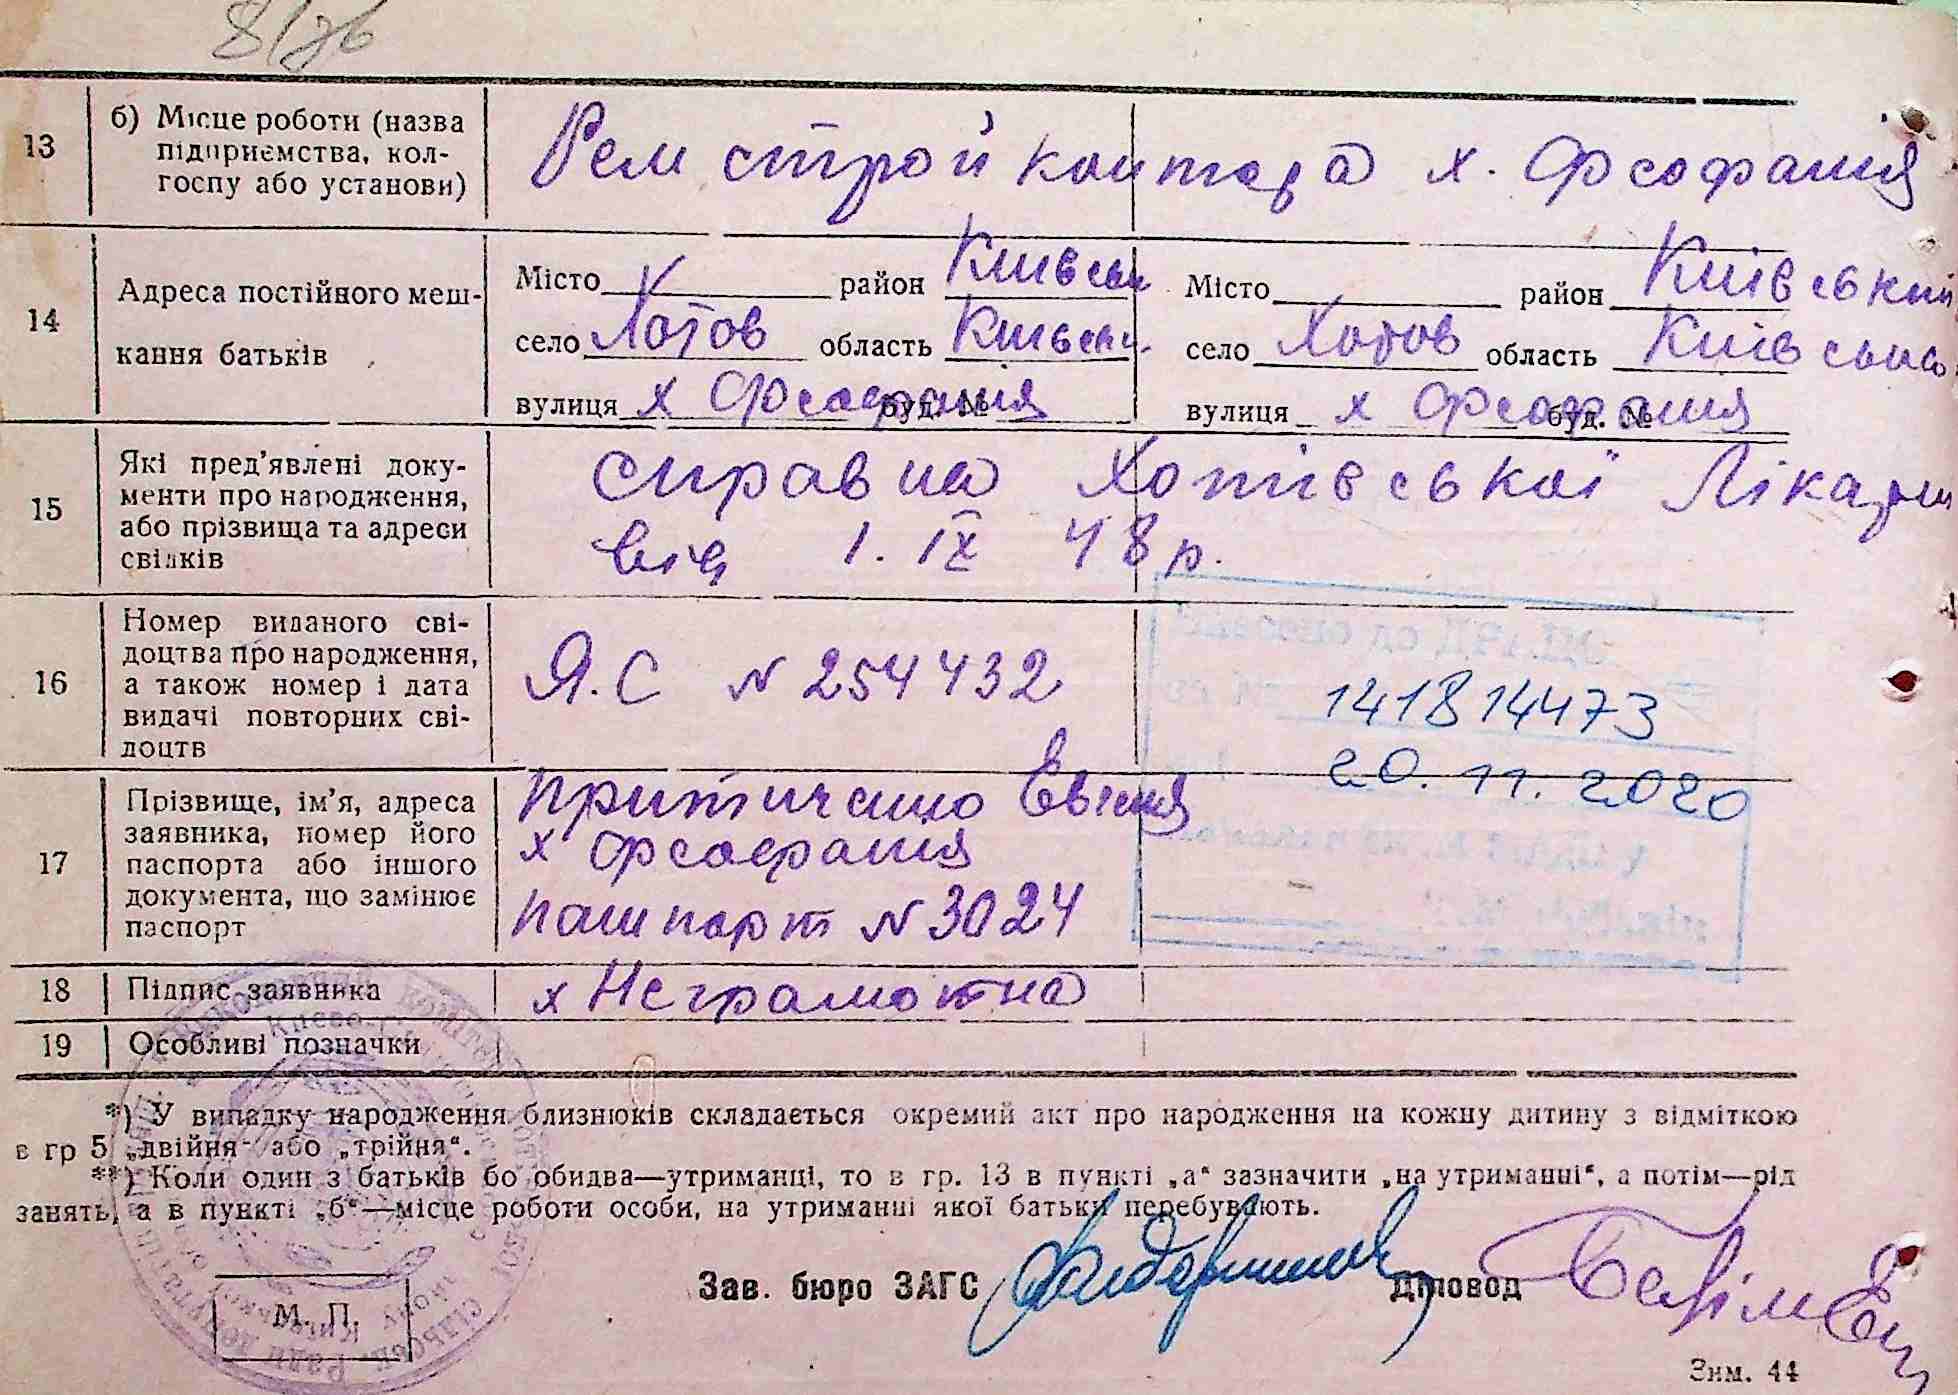 13 б) Місце роботи (назва
підприємства, кол-
госпу або установи)
Рем строй контора х. Феофания
14 Адреса постійного меш-
кання батьків
Місто район Київськ
село Хотов область Київськ.
вулиця х Феофания буд. №
Місто район Київський
село Хотов область Київська
вулиця х Феофания буд. №
15 Які пред'явлені доку-
менти про народження,
або прізвища та адреси
свідків
справка Хотівської Лікарні
від 1. IX 48 р.
16 Номер виданого сві-
доцтва про народження,
а також номер і дата
видачі повторних сві-
доцтв
Я.С № 254432
141814473
20.11.2020
17 Прізвище, ім'я, адреса
заявника, номер його
паспорта або іншого
документа, що замінює
паспорт
Евгения
х Феофания
пашпорт № 3024
18 Підпис заявника
х Неграмотна
19 Особливі позначки
*) У випадку народження близнюків складається окремий акт про народження на кожну дитину з відміткою
в гр 5 „двійня" або „трійня".
**) Коли один з батьків бо обидва—утриманці, то в гр. 13 в пункті „а" зазначити „на утриманні", а потім—рід
занять, а в пункті „б"—місце роботи особи, на утриманні якої батьки перебувають.
Зав. бюро ЗАГС
Діловод
М. П.
Зим. 44